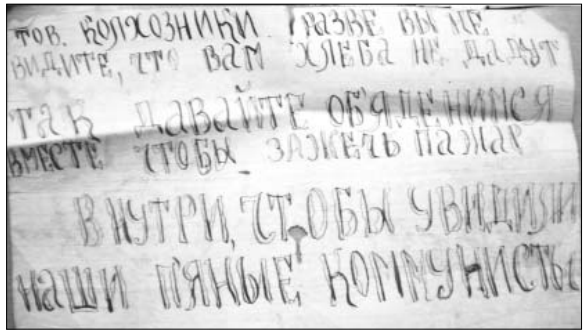 ТОВ. КОЛХОЗНИКИ. РАЗВЕ ВЫ НЕ
ВИДИТЕ, ЧТО ВАМ ХЛЕБА НЕ ДАДУТ
ТАК ДАВАЙТЕ ОБЯДЕНИМСЯ
ВМЕСТЕ ЧТОБЫ ЗАЖЕЧЬ ПАЖАР
ВНУТРИ, ЧТОБЫ УВИДИЛИ
НАШИ ПЯНЫЕ КОММУНИСТЫ